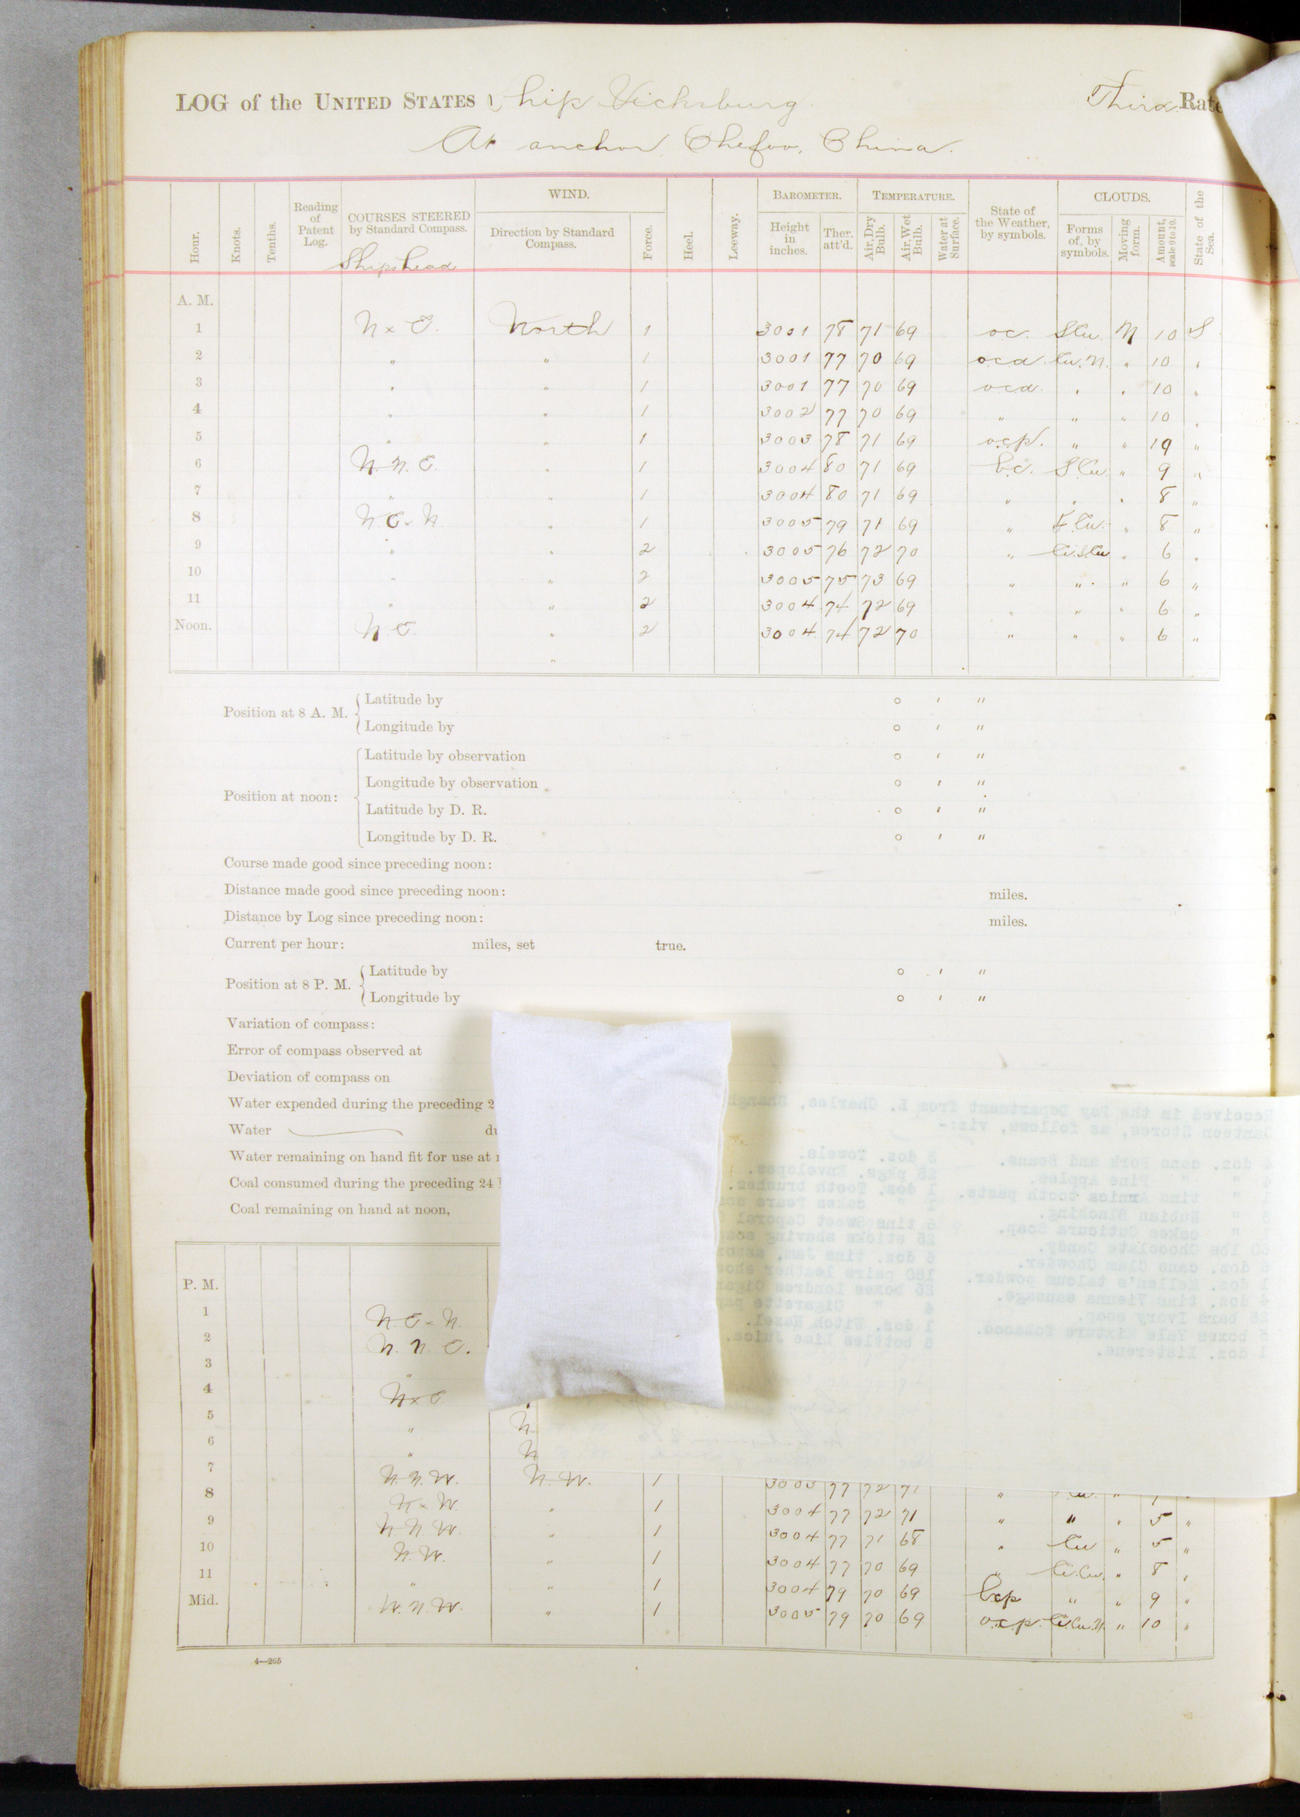 LOG of the UNITED STATES Ship Vicksburg Third Rate
At anchor Chefoo, China.
Hour. Knots. Tenths. Reading of Patent Log. COURSES STEERED by Standard Compass. WIND. Direction by Standard Compass. Force. Heel. Leeway. BAROMETER. Height in inches. Ther. att'd. TEMPERATURE. Air, Dry Bulb. Air, Wet Bulb. Water at Surface. State of the Weather, by symbols. CLOUDS. Forms of, by symbols. Moving form. Amount, scale 0 to 10. State of the Sea.
Ships head
A. M.
1 N x E. North 1 3001 78 71 69 oc. S Cu. N 10 S
2 " " 1 3001 77 70 69 ocd Cu. N. " 10 "
3 " " 1 3001 77 70 69 ocd. " " 10 "
4 " " 1 3002 77 70 69 " " " 10 "
5 " " 1 3003 78 71 69 ocp. " " 10 "
6 N. N. E. " 1 3004 80 71 69 bc. S Cu " 9 "
7 " " 1 3004 80 71 69 " " " 8 "
8 N E x N " 1 3005 79 71 69 " Cu. " 8 "
9 " " 2 3005 76 72 70 " " 6 "
10 " " 2 3005 75 73 69 " " " 6 "
11 " " 2 3004 74 72 69 " " " 6 "
Noon. N E. " 2 3004 74 72 70 " " " 6 "
"
Position at 8 A. M. Latitude by ° ' "
Longitude by ° ' "
Position at noon: Latitude by observation ° ' "
Longitude by observation ° ' "
Latitude by D. R. ° ' "
Longitude by D. R. ° ' "
Course made good since preceding noon:
Distance made good since preceding noon: miles.
Distance by Log since preceding noon: miles.
Current per hour: miles, set true.
Position at 8 P. M. Latitude by ° ' "
Longitude by ° ' "
Variation of compass:
Error of compass observed at
Deviation of compass on
Water expended during the preceding 2
Water du
Water remaining on hand fit for use at
Coal consumed during the preceding 24
Coal remaining on hand at noon,
P. M.
1 N E x N.
2 N. N. E.
3 "
4 N x E
5 " N
6 " N
7 N. N. W. N. W. 1 3003 77 72 71 " Cu. "
8 N x W. " 1 3004 77 72 71 " " " 5 "
9 N N W " 1 3004 77 71 68 " Cu " 5 "
10 N. W. " 1 3004 77 70 69 " Ci.Cu. " 8 "
11 " " 1 3004 79 70 69 bcp " " 9 "
Mid. W. N. W. " 1 3005 79 70 69 ocp. Ci.Cu.N. " 10 "
4—265
Received in the Pay Department from L. Charles, Shangh
Canteen Stores, as follows, viz:-
doz. cans Pork and Beans.
" " Pine Apples.
" tins Arnica tooth paste.
" Nubian Blacking.
" cakes Cuticura Soap.
lbs Chocolate Candy.
doz. cans Clam Chowder.
1 doz. Mellen's talcum powder.
4 doz. tins Vienna sausage.
bars Ivory soap.
boxes Yale Mixture Tobacco.
1 doz. Listerene.
doz. Towels.
25 pkgs. Envelopes.
1 doz. Tooth brushes.
1 " cakes Pears
tins Sweet Caporal
25 sticks shaving soap
6 doz. tins Jam,
180 pairs leather shoe
25 boxes Londres Cigar
4 " Cigarette pap
1 doz. Witch Hazel.
6 bottles Lime Juice.